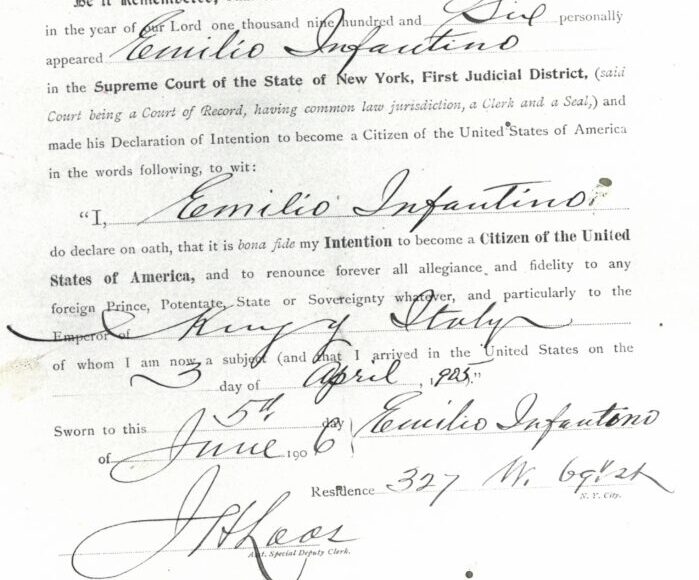 Be it Remembered,
in the year of our Lord one thousand nine hundred and Six personally
appeared Emilio Infantino
in the Supreme Court of the State of New York, First Judicial District, (said
Court being a Court of Record, having common law jurisdiction, a Clerk and a Seal,) and
made his Declaration of Intention to become a Citizen of the United States of America
in the words following, to wit:
"I, Emilio Infantino.
do declare on oath, that it is bona fide my Intention to become a Citizen of the United
States of America, and to renounce forever all allegiance and fidelity to any
foreign Prince, Potentate, State or Sovereignty whatever, and particularly to the
Emperor of King of Italy
of whom I am now a subject (and that I arrived in the United States on the
3 day of April, 1905."
Sworn to this 5th day
of June 1906 Emilio Infantino
Residence 327 W. 69th st
N. Y. City.
J H Loos
Asst. Special Deputy Clerk.